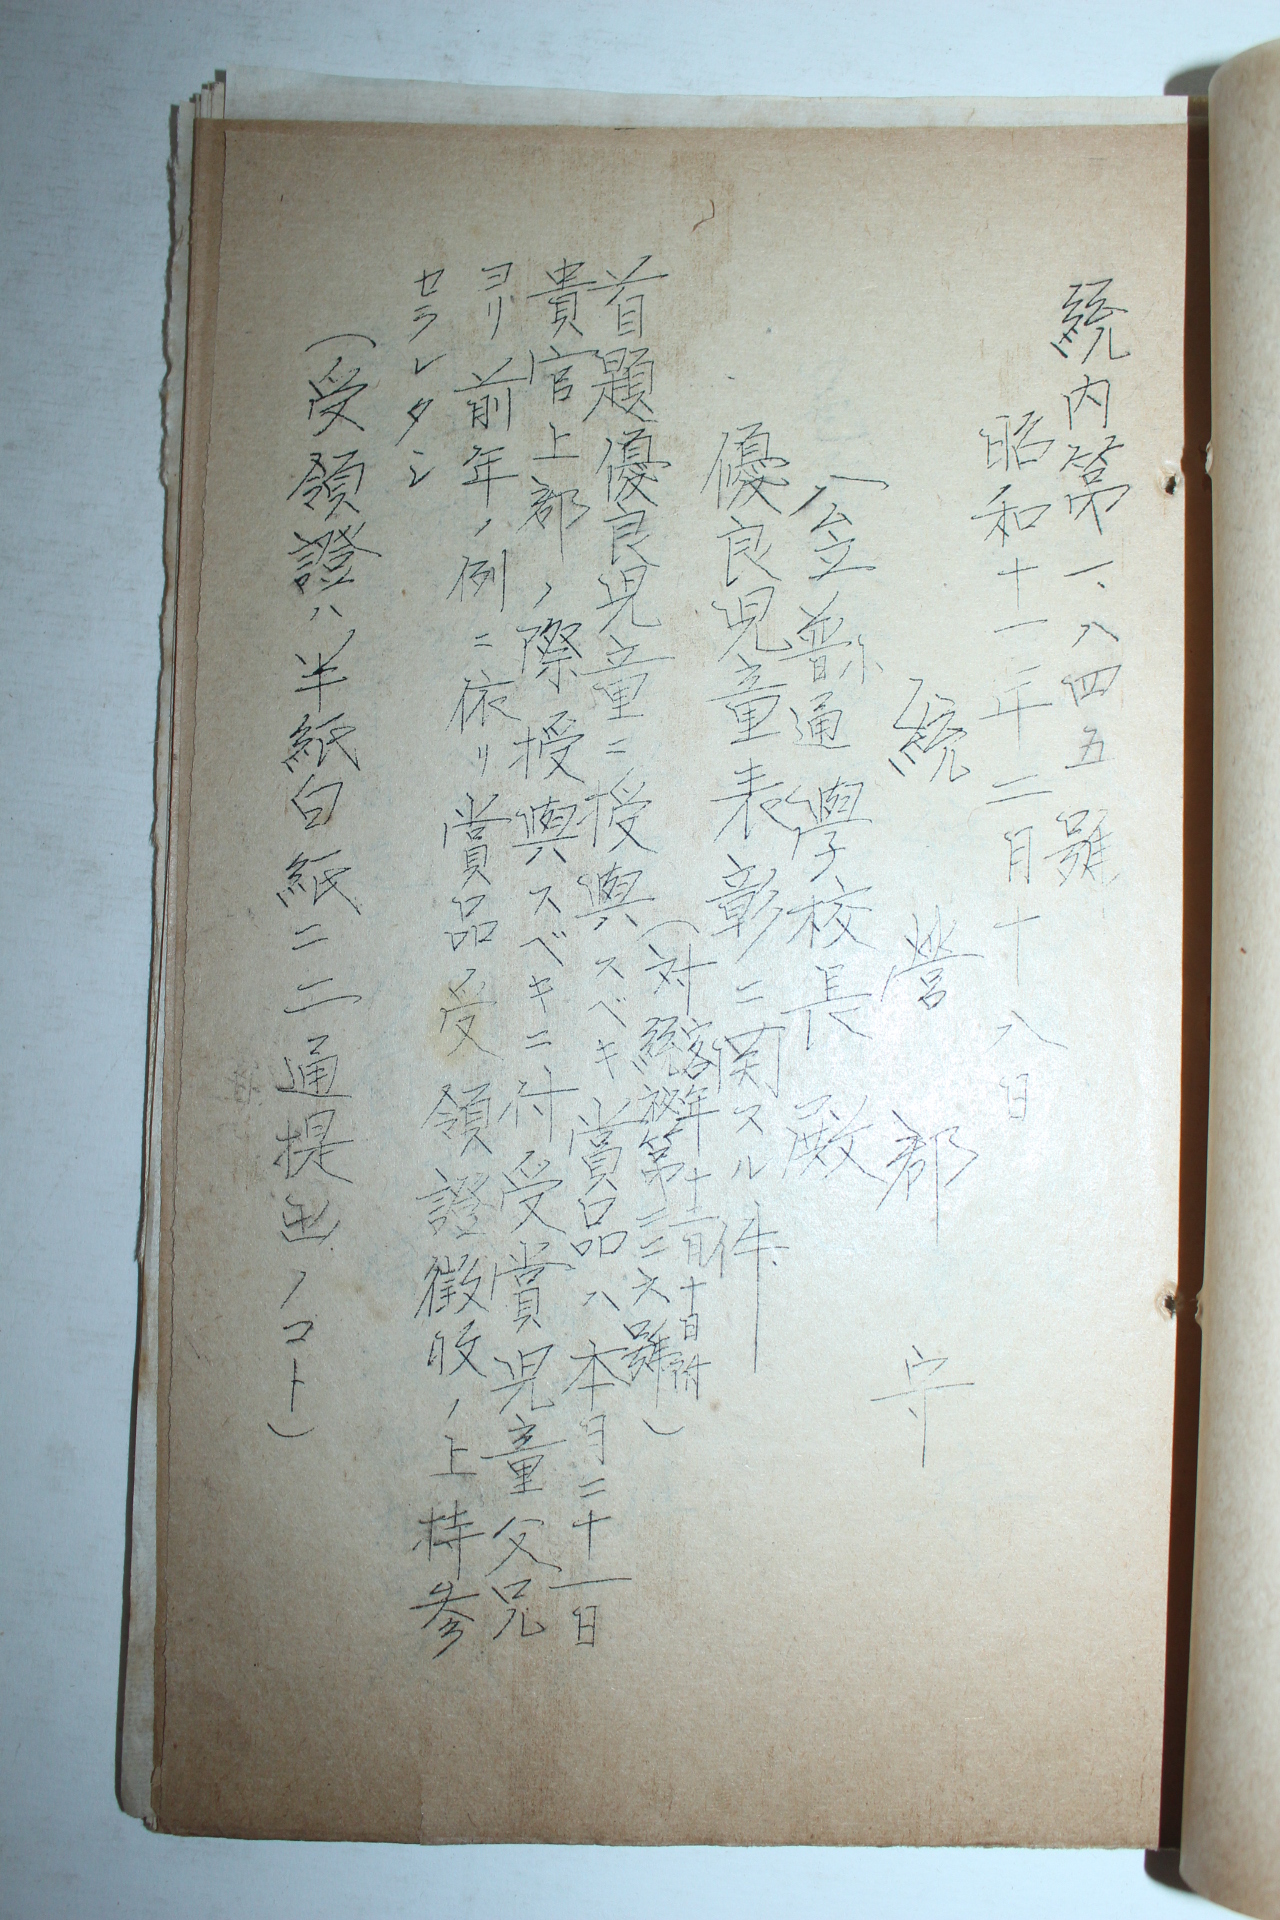 統内第一、八四五號
昭和十一年二月十八日
統營郡守
公立普通學校長殿
優良児童表彰ニ関スル件
(対客年十二月十日附
統祕第二三六號)
首題優良児童ニ授與スベキ賞品ハ本月二十一日
貴官上郡ノ際授與スベキニ付受賞児童父兄
ヨリ前年ノ例ニ依リ賞品受領證徴収ノ上持参
セラレタシ
(受領證ハ半紙白紙ニ二通提出ノコト)